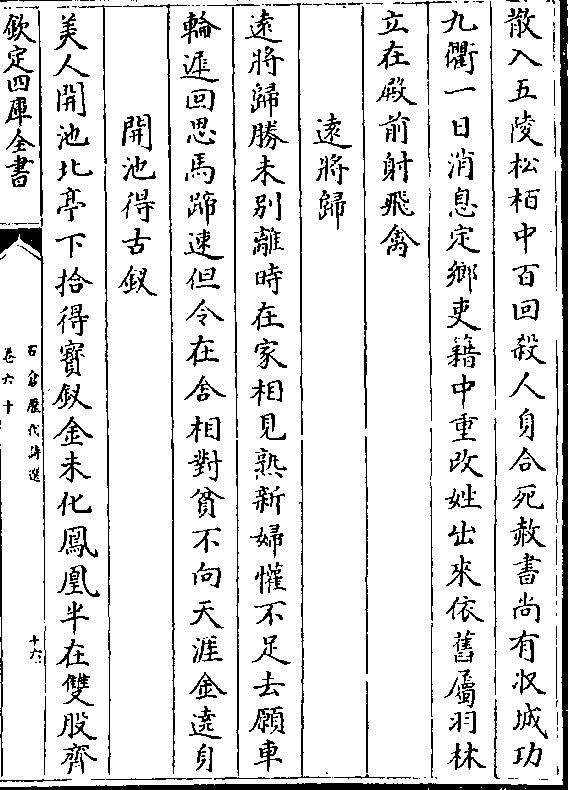 散入五陵松栢中百回殺人身合死赦書尚有収城功
九衢一日消息定鄉吏籍中重改姓出來依舊屬羽林
立在殿前射飛禽
遠將歸
遠將歸勝未別離時在家相見熟新婦懽不足去願車
輪遲回思馬蹄速但令在舍相對貧不向天涯金遶身
開池得古釵
美人開池北亭下拾得寳釵金未化鳳凰半在雙股齊
欽定四庫全書
石倉歷代詩選
卷六十
十六